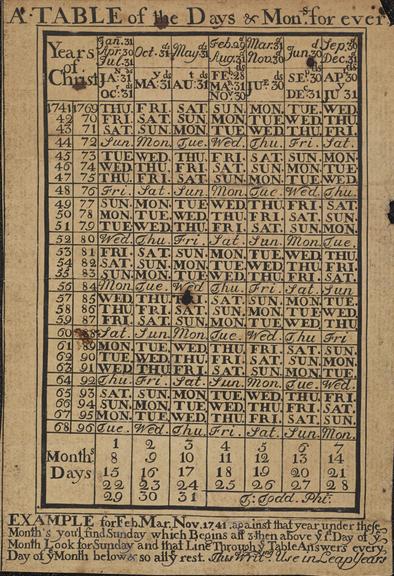 A TABLE of the Days & Mon.s for ever
Years of Christ
Jan. 31 Apr. 30 Jul. 31 Oct. 31 May. 31 Feb. 29 Aug. 31 Mar. 31 Nov. 30 Jun. 30 Sep. 30 Dec. 31
1741 1769 THU. FRI. SAT. SUN. MON. TUE. WED.
42 70 FRI. SAT. SUN. MON. TUE. WED. THU.
43 71 SAT. SUN. MON. TUE. WED. THU. FRI.
44 72 Sun. Mon. Tue. Wed. Thu. Fri. Sat.
45 73 TUE. WED. THU. FRI. SAT. SUN. MON.
46 74 WED. THU. FRI. SAT. SUN. MON. TUE.
47 75 THU. FRI. SAT. SUN. MON. TUE. WED.
48 76 Fri. Sat. Sun. Mon. Tue. Wed. Thu.
49 77 SUN. MON. TUE. WED. THU. FRI. SAT.
50 78 MON. TUE. WED. THU. FRI. SAT. SUN.
51 79 TUE. WED. THU. FRI. SAT. SUN. MON.
52 80 Wed. Thu. Fri. Sat. Sun. Mon. Tue.
53 81 FRI. SAT. SUN. MON. TUE. WED. THU.
54 82 SAT. SUN. MON. TUE. WED. THU. FRI.
55 83 SUN. MON. TUE. WED. THU. FRI. SAT.
56 84 Mon. Tue. Wed. Thu. Fri. Sat. Sun
57 85 WED. THU. FRI. SAT. SUN. MON. TUE.
58 86 THU. FRI. SAT. SUN. MON. TUE. WED.
59 87 FRI. SAT. SUN. MON. TUE. WED. THU
60 Sat. Sun. Mon. Tue. Wed. Thu. Fri
61 89 MON. TUE. WED. THU. FRI. SAT. SUN.
62 90 TUE. WED. THU. FRI. SAT. SUN. MON.
63 91 WED. THU. FRI. SAT. SUN. MON. TUE.
64 92 Thu. Fri. Sat. Sun. Mon. Tue. Wed.
65 93 SAT. SUN. MON. TUE. WED. THU. FRI.
66 94 SUN. MON. TUE. WED. THU. FRI. SAT.
67 95 MON. TUE. WED. THU. FRI. SAT. SUN.
68 96 Tue. Wed. Thu. Fri. Sat. Sun. Mon.
Month.s Days
1 2 3 4 5 6 7
8 9 10 11 12 13 14
15 16 17 18 19 20 21
22 23 24 25 26 27 28
29 30 31 T. Todd. Pht.
EXAMPLE for Feb. Mar. Nov. 1741. against that year under these
Month's you'l find Sunday which Begins all 3 then above ye 1st Day of ye
Month Look for Sunday and that Line Through ye Table Answers every
Day of ye Month below & so all ye rest. This Use in Leap Years